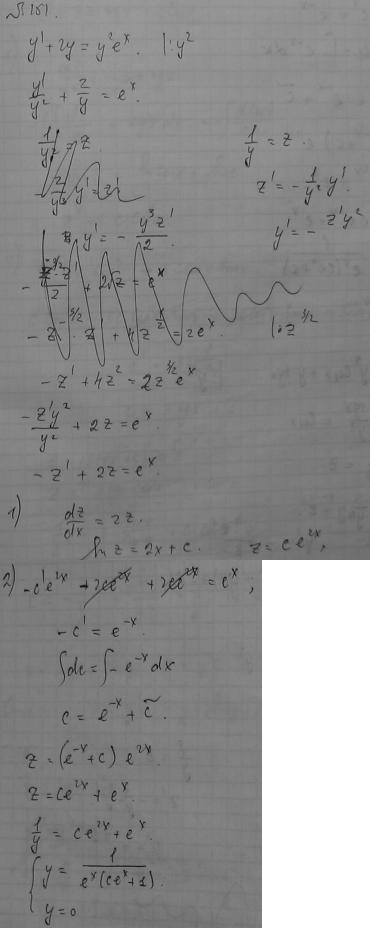 №151.
y' + 2y = y²eˣ. |:y²
y'/y² + 2/y = eˣ
1/y² = z.
1/y = z.
z' = -1/y² y'.
y' = -z'y²
y' = - y³z'/2.
-z' + 4z² = 2z^(3/2) eˣ
-z'y²/y² + 2z = eˣ
-z' + 2z = eˣ.
1) dz/dx = 2z.
ln z = 2x + c. z = ce²ˣ,
2) -c'e²ˣ - 2ce²ˣ + 2ce²ˣ = eˣ,
-c' = e⁻ˣ.
∫dc = ∫-e⁻ˣdx
c = e⁻ˣ + c̃.
z = (e⁻ˣ + c) e²ˣ.
z = ce²ˣ + eˣ.
1/y = ce²ˣ + eˣ.
{ y = 1/(eˣ(ceˣ+1)).
y = 0